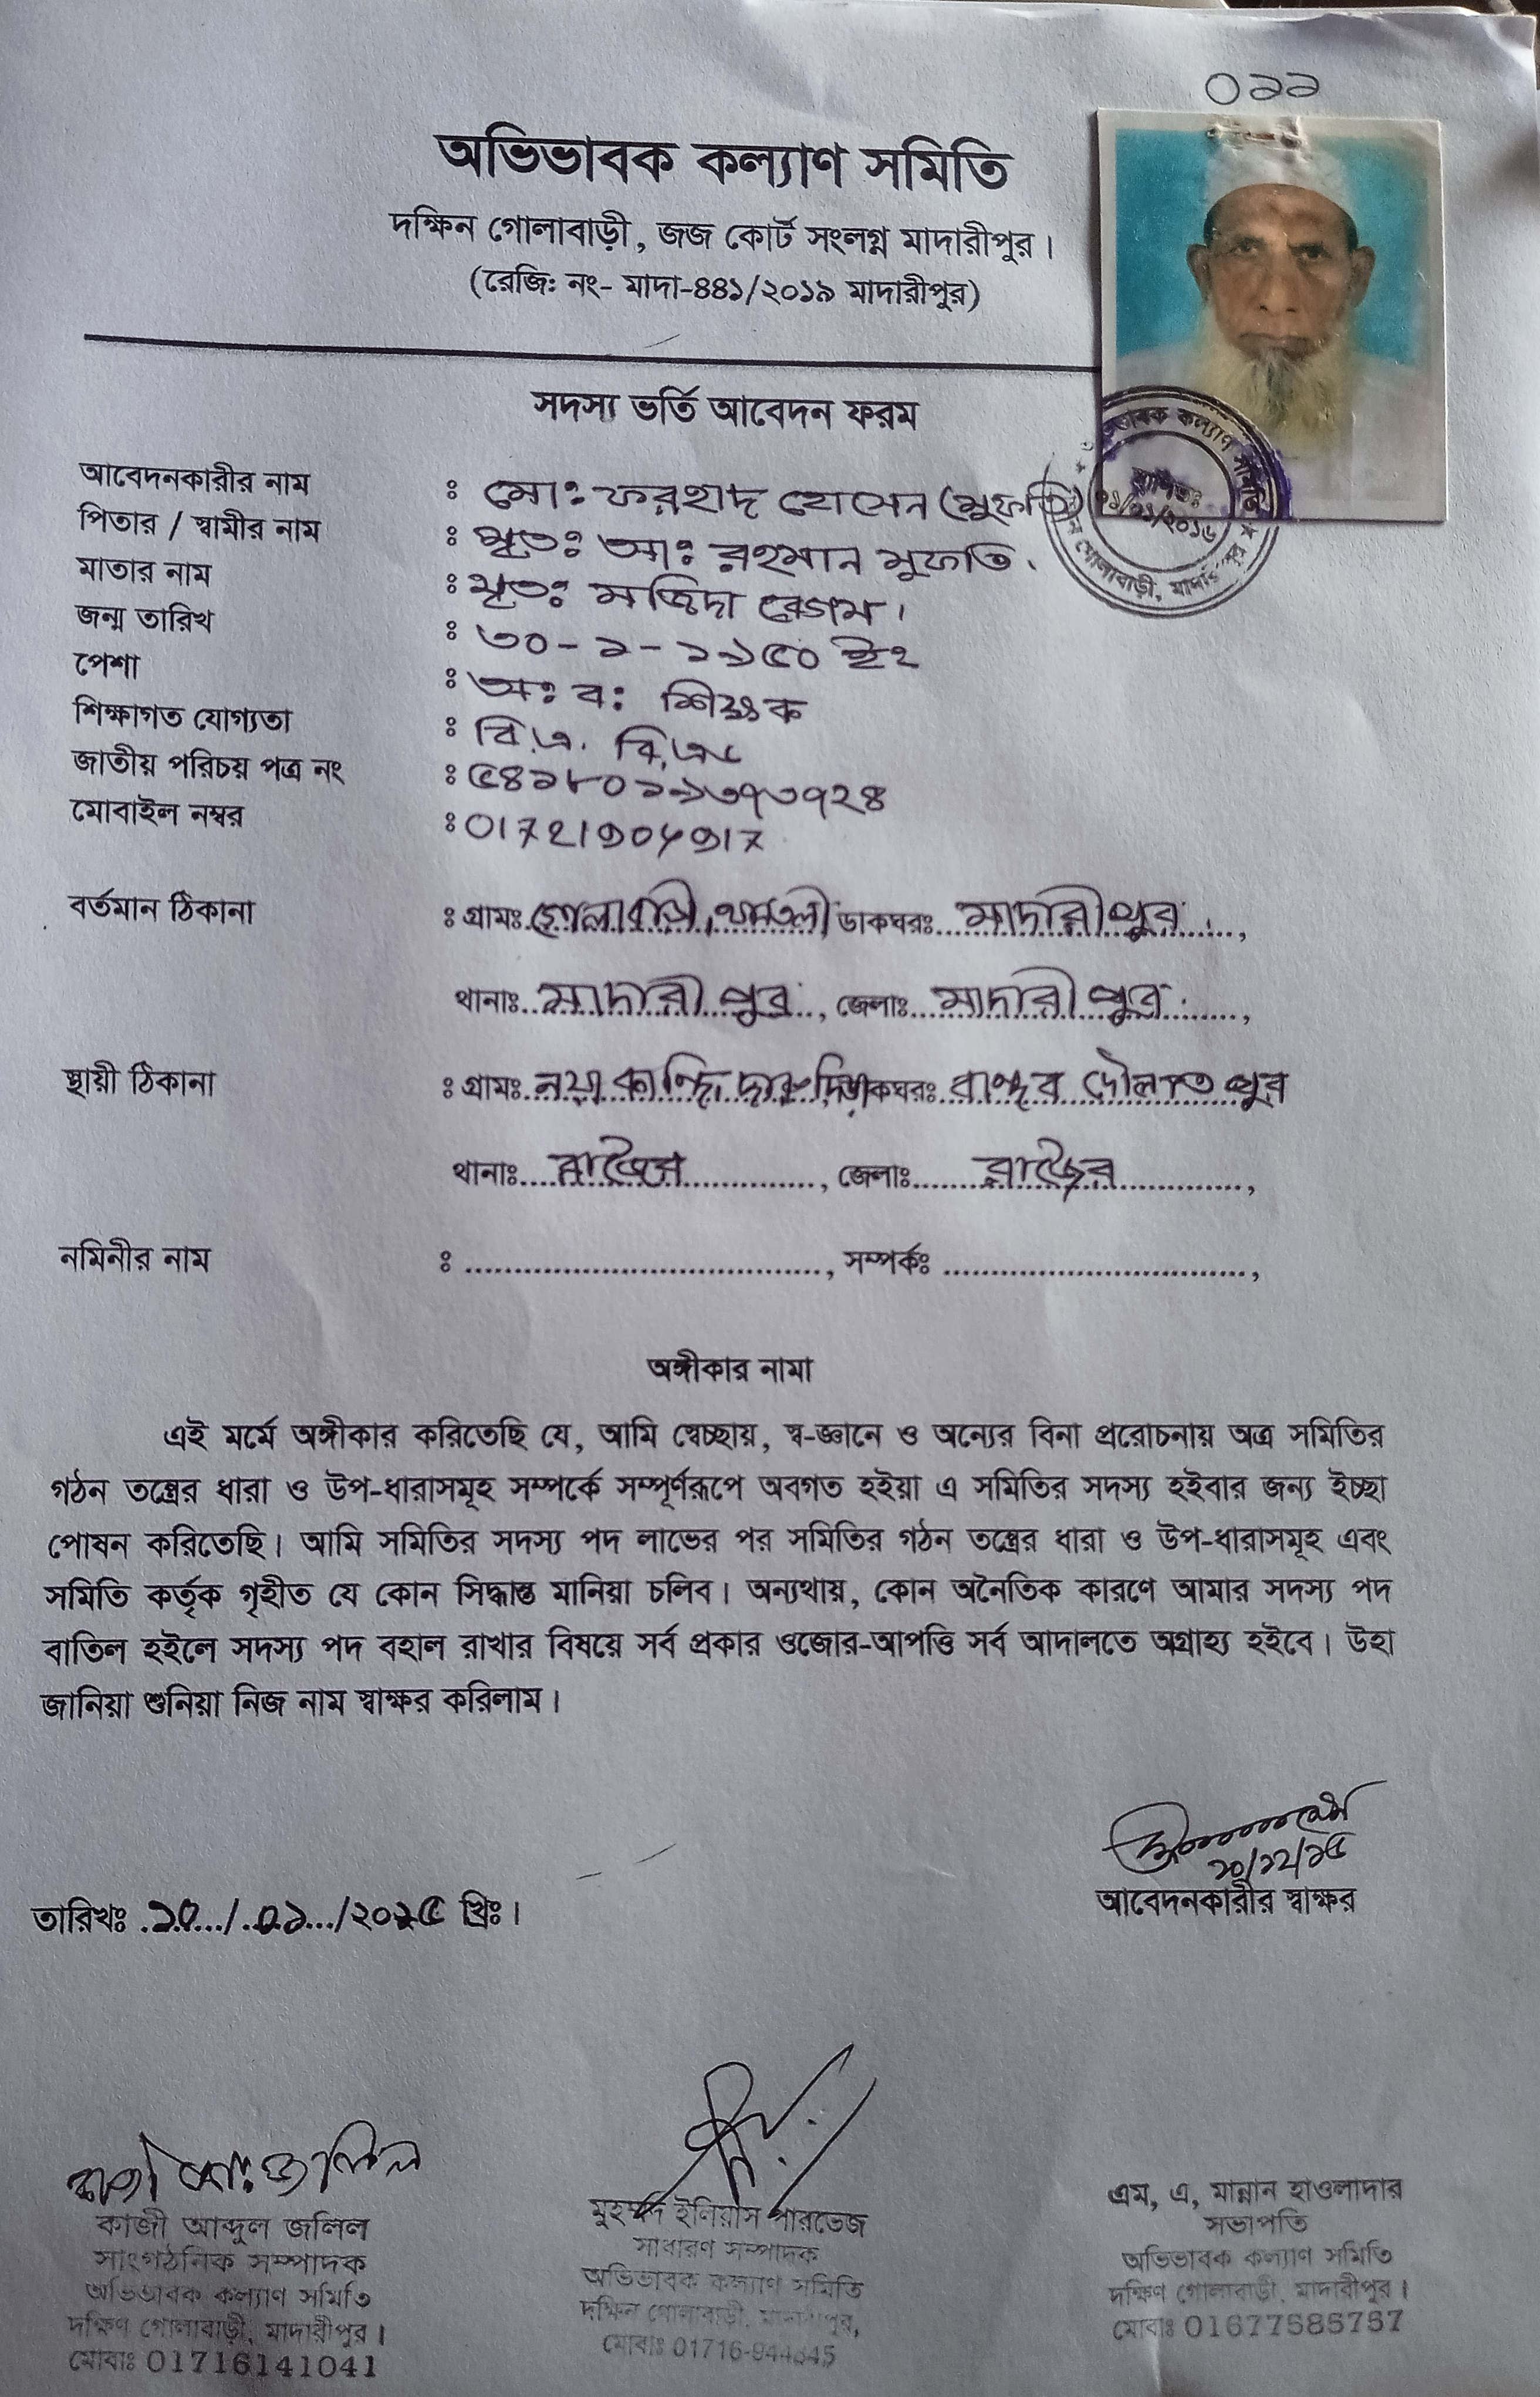 ০১১
অভিভাবক কল্যাণ সমিতি
দক্ষিন গোলাবাড়ী, জজ কোর্ট সংলগ্ন মাদারীপুর।
(রেজি: নং- মাদা-৪৪১/২০১৯ মাদারীপুর)
সদস্য ভর্তি আবেদন ফরম
আবেদনকারীর নাম : মো: ফরহাদ হোসেন (মুফতি)
পিতার / স্বামীর নাম : মৃত: আ: রহমান মুফতি.
মাতার নাম : মৃত: মজিদা বেগম।
জন্ম তারিখ : ৩০-১-১৯৫০ ইং
পেশা : অ: ব: শিক্ষক
শিক্ষাগত যোগ্যতা : বি.এ. বি,এড
জাতীয় পরিচয় পত্র নং : ৫৪১৮০১৯৩৭৩৭২৪
মোবাইল নম্বর :
বর্তমান ঠিকানা : গ্রামঃ গোলাবাড়ী, ডাকঘরঃ মাদারীপুর,
থানাঃ মাদারীপুর, জেলাঃ মাদারীপুর,
স্থায়ী ঠিকানা : গ্রামঃ নয়াকান্দি ডাকঘরঃ বান্ধব দৌলতপুর
থানাঃ রাজৈর, জেলাঃ রাজৈর,
নমিনীর নাম : ...................................., সম্পর্কঃ ...............................,
অঙ্গীকার নামা
এই মর্মে অঙ্গীকার করিতেছি যে, আমি স্বেচ্ছায়, স্ব-জ্ঞানে ও অন্যের বিনা প্ররোচনায় অত্র সমিতির
গঠন তন্ত্রের ধারা ও উপ-ধারাসমূহ সম্পর্কে সম্পূর্ণরূপে অবগত হইয়া এ সমিতির সদস্য হইবার জন্য ইচ্ছা
পোষন করিতেছি। আমি সমিতির সদস্য পদ লাভের পর সমিতির গঠন তন্ত্রের ধারা ও উপ-ধারাসমূহ এবং
সমিতি কর্তৃক গৃহীত যে কোন সিদ্ধান্ত মানিয়া চলিব। অন্যথায়, কোন অনৈতিক কারণে আমার সদস্য পদ
বাতিল হইলে সদস্য পদ বহাল রাখার বিষয়ে সর্ব প্রকার ওজোর-আপত্তি সর্ব আদালতে অগ্রাহ্য হইবে। উহা
জানিয়া শুনিয়া নিজ নাম স্বাক্ষর করিলাম।
আবেদনকারীর স্বাক্ষর
তারিখঃ ১০/০১/২০১৫ খ্রিঃ।
কাজী আব্দুল জলিল
সাংগঠনিক সম্পাদক
অভিভাবক কল্যাণ সমিতি
দক্ষিণ গোলাবাড়ী, মাদারীপুর।
মোবাঃ 01716141041
মুহম্মদ ইলিয়াস পারভেজ
সাধারণ সম্পাদক
অভিভাবক কল্যাণ সমিতি
দক্ষিন গোলাবাড়ী, মাদারীপুর,
মোবাঃ
এম, এ, মান্নান হাওলাদার
সভাপতি
অভিভাবক কল্যাণ সমিতি
দক্ষিণ গোলাবাড়ী, মাদারীপুর।
মোবাঃ